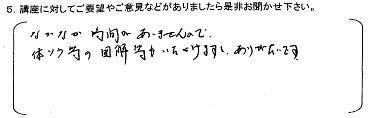 5. 講座に対してご要望やご意見などがありましたら是非お聞かせ下さい。
なかなか時間がありませんので、
体ソク等の図解等もいただけますと、ありがたいです